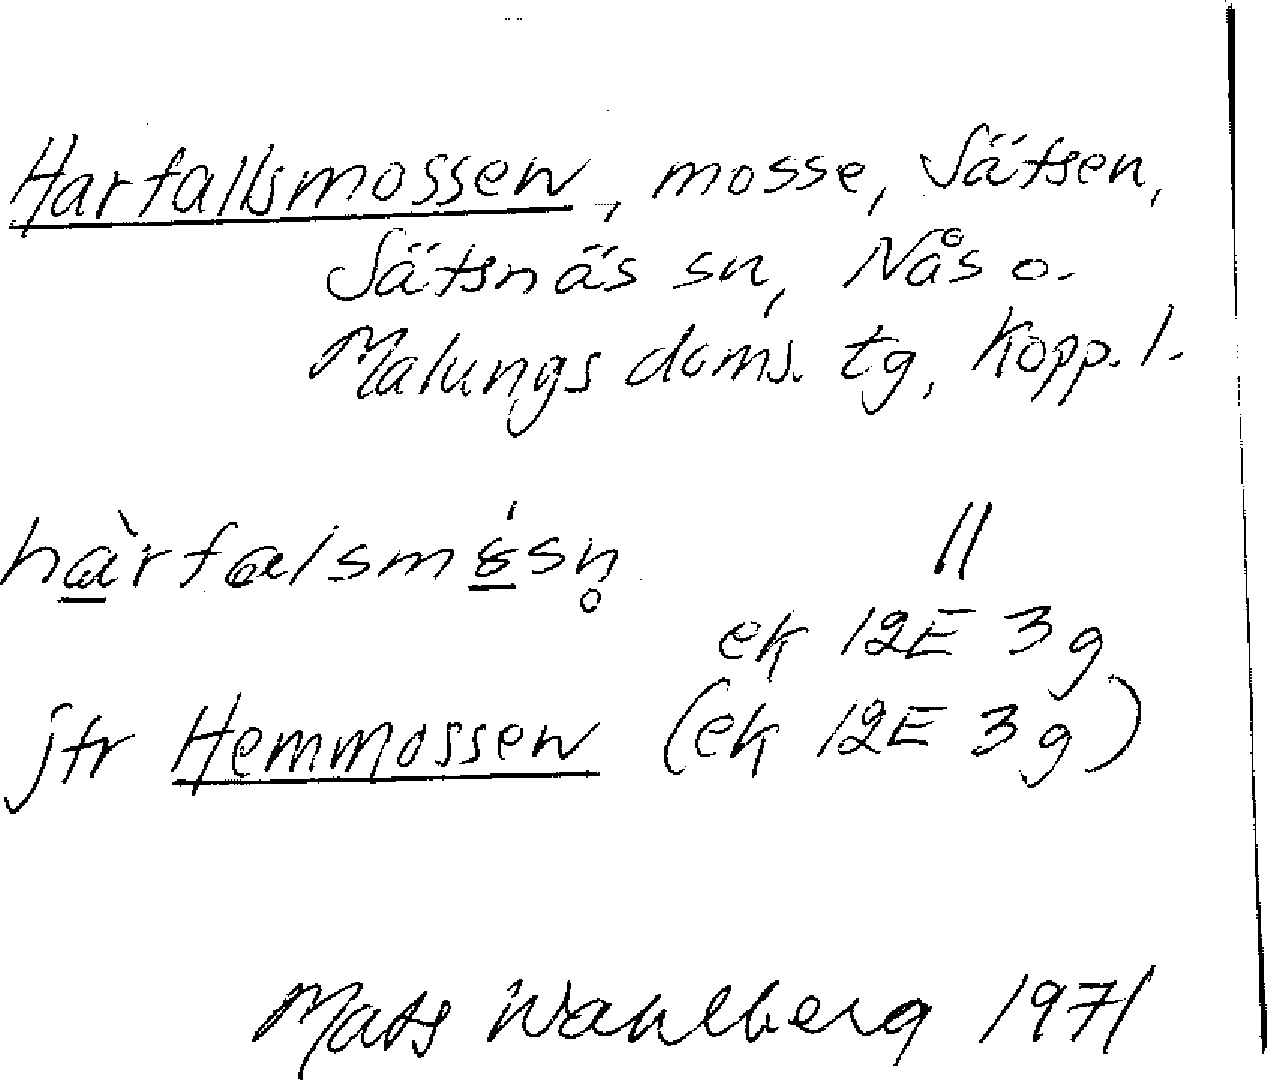 Harfallsmossen, mosse, Sätsen,
Sätsnäs sn, Nås o.
Malungs doms. tg, Kopp. l.
ek 12E 3g
jfr Hemmossen (ek 12E 3g)
Mats Wahlberg 1971